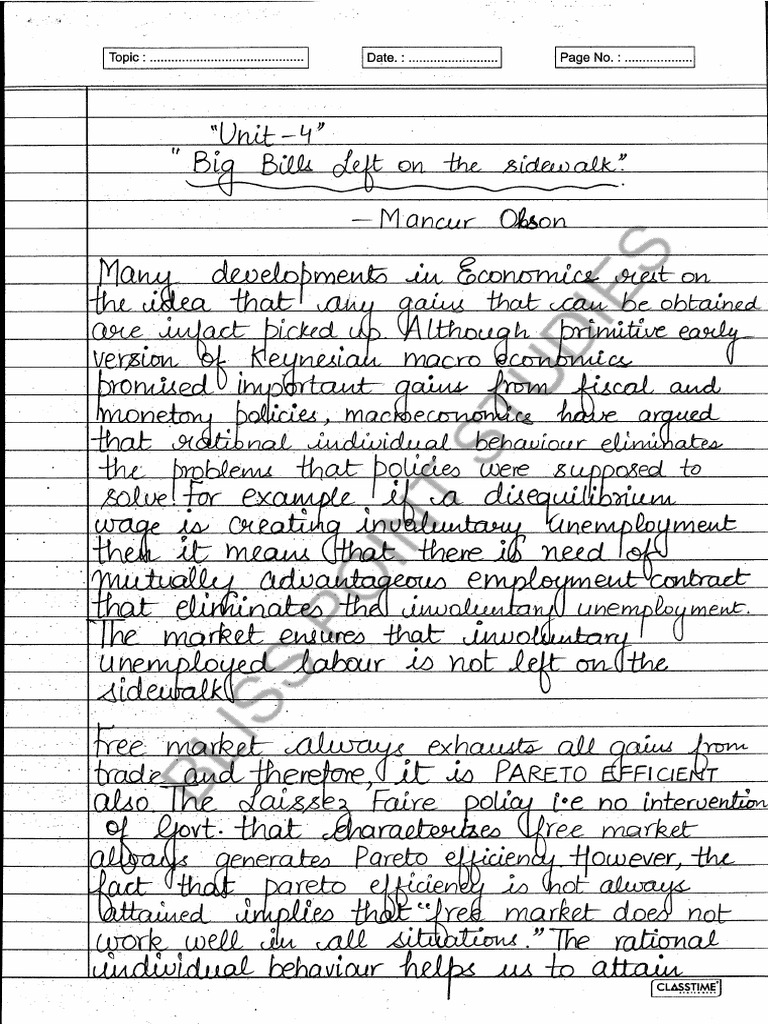 Topic : ............................................ Date. : .......................... Page No. : ....................
"Unit-4"
"Big Bills Left on the sidewalk."
- Mancur Olson
Many developments in Economics rest on
the idea that any gains that can be obtained
are infact picked up. Although primitive early
version of Keynesian macro economics
promised important gains from fiscal and
monetory policies, macroeconomics have argued
that rational individual behaviour eliminates
the problems that policies were supposed to
solve. For example if a disequilibrium
wage is creating involuntary unemployment
then it means that there is need of
mutually advantageous employment contract
that eliminates the involuntary unemployment.
The market ensures that involuntary
unemployed labour is not left on the
sidewalk
Free market always exhausts all gains from
trade and therefore, it is PARETO EFFICIENT
also. The Laissez Faire policy i.e no intervention
of Govt. that characterizes free market
always generates Pareto efficiency. However, the
fact that pareto efficiency is not always
attained implies that "free market does not
work well in all situations." The rational
individual behaviour helps us to attain
CLASSTIME
BLISS POINT STUDIES